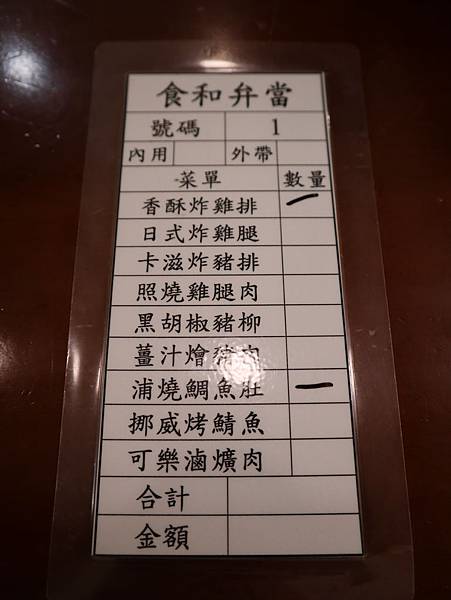 食和弁當
號碼 1
內用 外帶
菜單 數量
香酥炸雞排 一
日式炸雞腿
卡滋炸豬排
照燒雞腿肉
黑胡椒豬柳
薑汁燴豬肉
浦燒鯛魚肚 一
挪威烤鯖魚
可樂滷爌肉
合計
金額